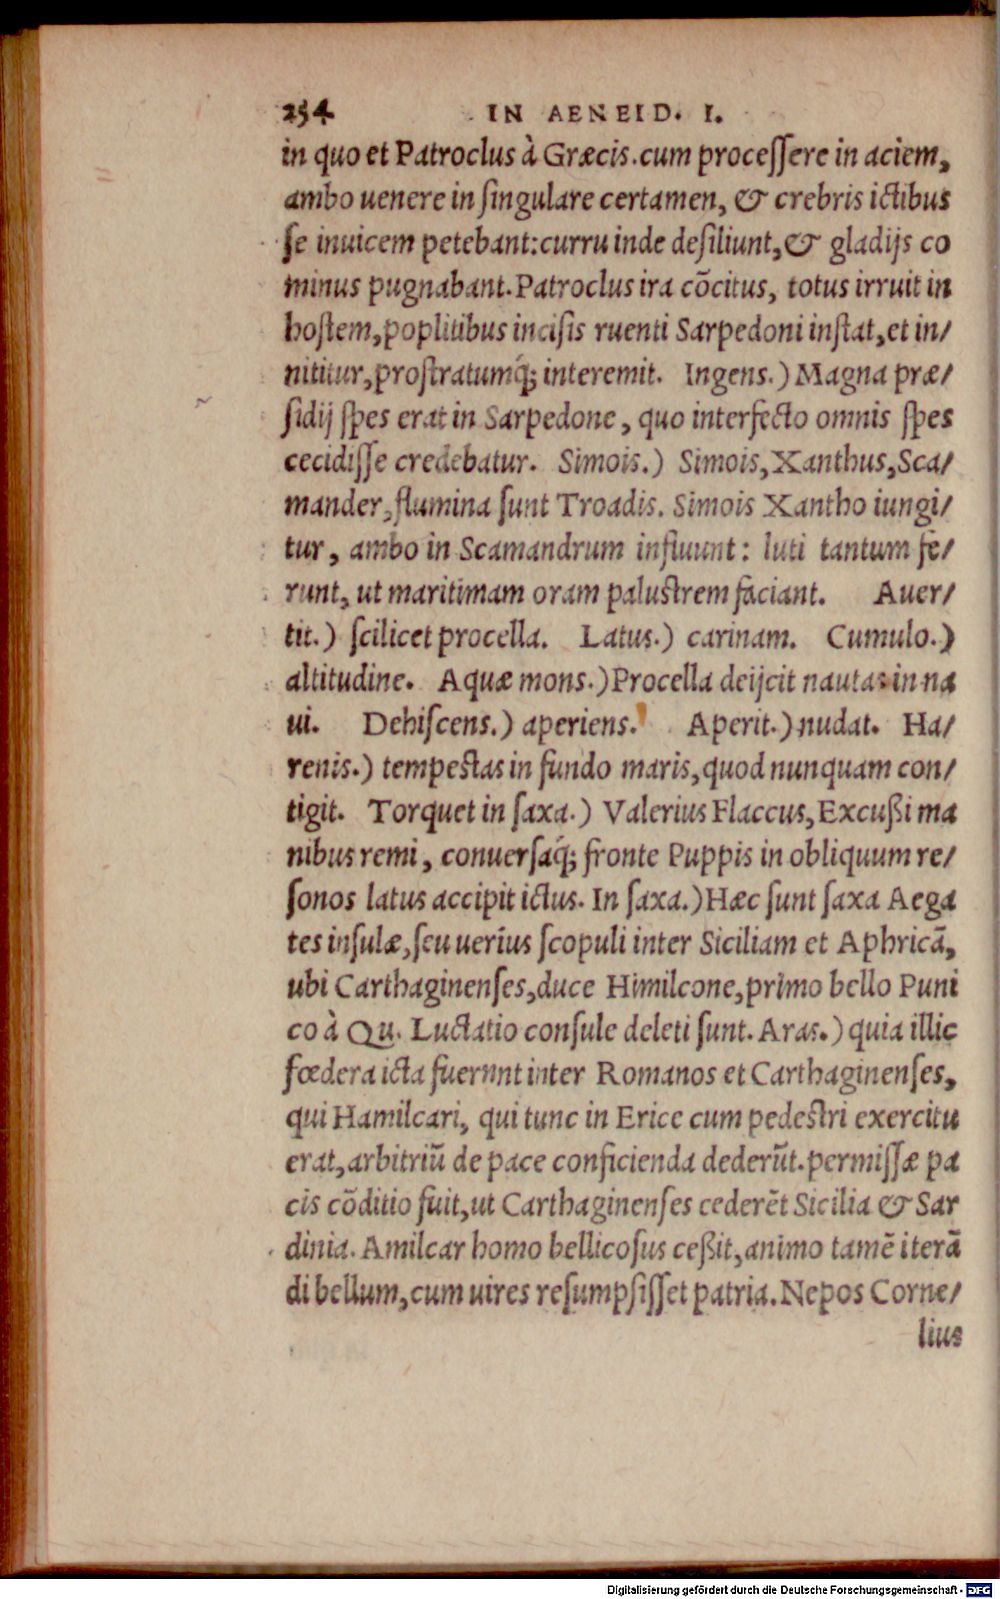 254 IN AENEID. I.
in quo et Patroclus à Græcis.cum proceſſere in aciem,
ambo uenere in ſingulare certamen, & crebris ictibus
ſe inuicem petebant:curru inde deſiliunt,& gladijs co
minus pugnabant.Patroclus ira cõcitus, totus irruit in
hoſtem,poplitibus inciſis ruenti Sarpedoni inſtat,et in/
nititur,proſtratumq́; interemit. Ingens.) Magna præ/
ſidij ſpes erat in Sarpedone, quo interfecto omnis ſpes
cecidiſſe credebatur. Simois.) Simois,Xanthus,Sca/
mander,flumina ſunt Troadis. Simois Xantho iungi/
tur, ambo in Scamandrum influunt: luti tantum fe/
runt, ut maritimam oram paluſtrem faciant. Auer/
tit.) ſcilicet procella. Latus.) carinam. Cumulo.)
altitudine. Aquæ mons.)Procella deijcit nautas in na
ui. Dehiſcens.) aperiens. Aperit.) nudat. Ha/
renis.) tempeſtas in fundo maris,quod nunquam con/
tigit. Torquet in ſaxa.) Valerius Flaccus,Excußi ma
nibus remi, conuerſaq́; fronte Puppis in obliquum re/
ſonos latus accipit ictus. In ſaxa.)Hæc ſunt ſaxa Aega
tes inſulæ,ſeu uerius ſcopuli inter Siciliam et Aphricã,
ubi Carthaginenſes,duce Himilcone,primo bello Puni
co à Qu. Luctatio conſule deleti ſunt. Aras.) quia illic
fœdera icta fuerunt inter Romanos et Carthaginenſes,
qui Hamilcari, qui tunc in Erice cum pedeſtri exercitu
erat,arbitriũ de pace conficienda dederũt.permiſſæ pa
cis cõditio fuit,ut Carthaginenſes cederẽt Sicilia & Sar
dinia. Amilcar homo bellicoſus ceßit,animo tamẽ iterã
di bellum,cum uires reſumpſiſſet patria.Nepos Corne/
lius
Digitalisierung gefördert durch die Deutsche Forschungsgemeinschaft - DFG